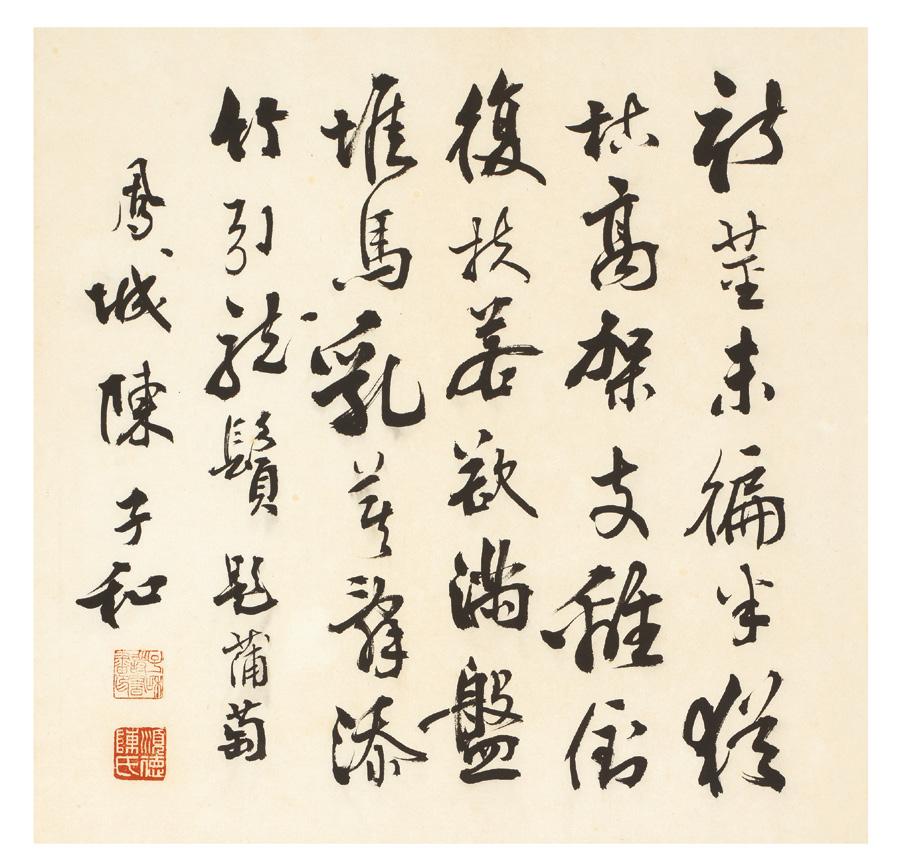 新莖未徧半猶
枯高架支離倒
復扶若欲滿盤
堆馬乳莫辭添
竹引龍鬚題蒲萄
鳳城陳子和
順德
陳氏